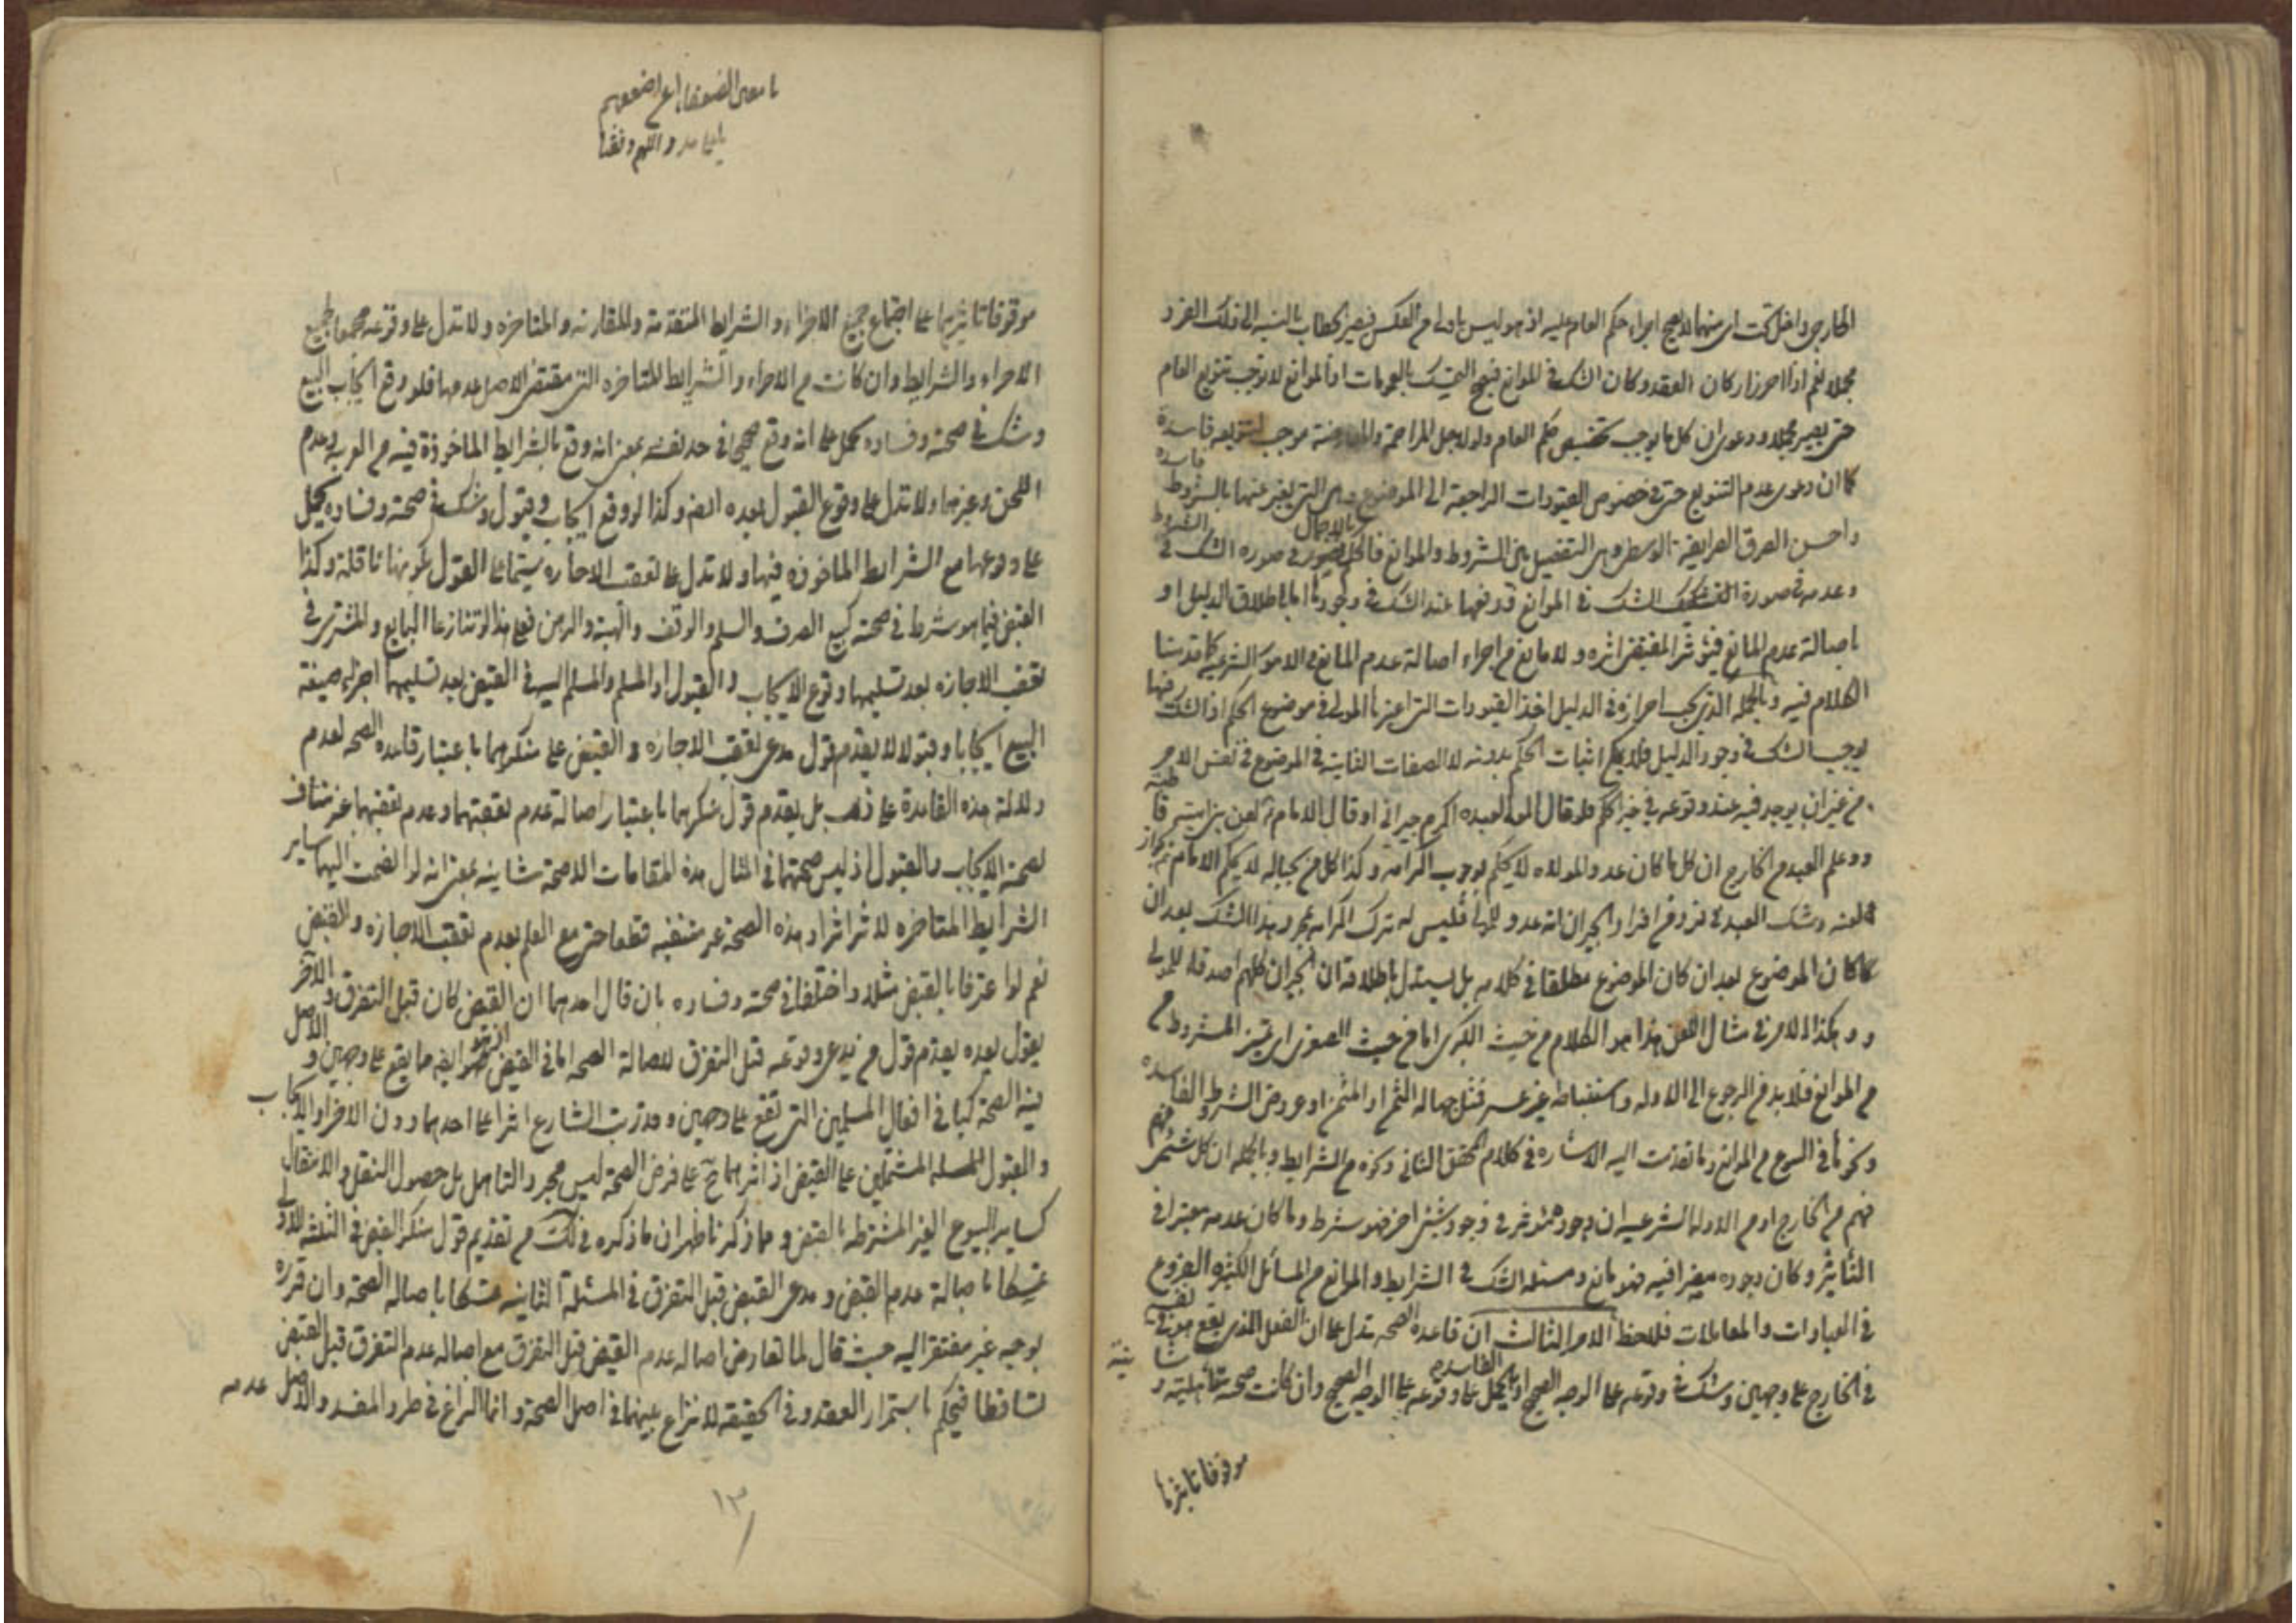 الخارجي داخل تحت اي منهما لا يصح اجراء حكم العام عليه اذ هو ليس باولى من العكس فيصير الخطاب بالنسبة الى ذلك الفرد
مجملا نعم اذا احرز اركان العقد وكان الشك في الموانع فيصح التمسك بالعمومات اذ الموانع لا توجب تنويع العام
حتى يصير مجملا ودعوى ان كل ما يوجب تخصيص حكم العام ولو لاجل المزاحمة والمعارضة موجب لتنويعه فاسدة
كما ان دعوى عدم التنويع حتى في خصوص القيودات الراجعة الى الموضوع وهي التي يعبر عنها بالشروط فاسدة
واحسن الطرق الطريقة الوسطى هي التفصيل بين الشروط والموانع فالحكم بالاجمال في صورة الشك في الشروط
وعدمه في صورة الشك في الموانع فدفعها عند الشك في وجودها اما باطلاق الدليل او
باصالة عدم المانع فيؤثر المقتضى اثره ولا مانع من اجراء اصالة عدم المانع في الامور الشرعية كما قدمنا
الكلام فيه وبالجملة الذي يجب احرازه في الدليل اخذ القيودات التي اعتبرها المولى في موضوع الحكم اذ الشك فيها
يوجب الشك في وجود الدليل فلا يمكن اثبات الحكم بدونه لا الصفات الثابتة في الموضوع في نفس الامر
من غير ان يوجد فيه عند وقوعه في حيز الحكم فلو قال المولى لعبده اكرم جيراني او قال الامام لعن بني امية قاطبة
وعلم العبد من الخارج ان كل ما كان عدوا لمولاه لا يحكم بوجوب اكرامه وكذا كل من يحبا له لا يحكم الامام بجواز
لعنه وشك العبد في فرد من افراد الجيران انه عدو للمولى فليس له ترك اكرامه بمجرد هذا الشك بعد ان
كان الموضوع بعد ان كان الموضوع مطلقا في كلامه بل يستدل باطلاقه ان الجيران كلهم اصدقاء للمولى
وهكذا الامر في مثال اللعن هذا هو الكلام من حيث الكبرى اما من حيث الصغرى اي تميز الشروط من
من الموانع فلا بد من الرجوع الى الادلة واستنباطه غير عسر فمثل جهالة الثمن او المثمن او عروض الشروط الفاسدة
ونحوها في البيع من الموانع وما تقدمت اليه الاشارة في كلام المحقق الثاني ونحوه من الشرايط وبالجملة ان كل شيء
فهم من الخارج او من الادلة الشرعية ان وجوده مؤثر في وجود شيء اخر فهو شرط وما كان عدمه معتبرا في
التأثير وكان وجوده مضرا فيه فهو مانع ومسئلة الشك في الشرايط والموانع من المسائل الكثيرة الفروع
في العبادات والمعاملات فلاحظ الامر الثالث ان قاعدة الصحة تدل على ان الفعل الذي يقع
في الخارج على وجهين وشك في وقوعه على الوجه الصحيح او الفاسد يحمل على وقوعه على الوجه الصحيح وان كانت صحته تأهلية و
موقوفا تاثيرها
اللهم وفقنا
موقوفا تاثيرها على اجتماع جميع الاجزاء والشرايط المتقدمة والمقارنة والمتاخرة ولا تدل على وقوعه مجمعا لجميع
الاجزاء والشرايط وان كانت من الاجزاء والشرايط المتاخرة التي مقتضى الاصل عدمها فلو وقع ايجاب البيع
وشك في صحته وفساده يحمل على انه وقع صحيحا في حد نفسه بمعنى انه وقع بالشرايط الماخوذة فيه من العربية وعدم
اللحن وغيرهما ولا تدل على وقوع القبول بعده ايضا وكذا لو وقع ايجاب وقبول وشك في صحته وفساده يحمل
على وقوعها مع الشرايط الماخوذة فيها ولا تدل على تعقب الاجازة سيما على القول بكونها ناقلة وكذا
القبض فيما هو شرط في صحته كبيع الصرف والسلم والوقف والهبة والرهن فعلى هذا لو تنازعا البايع والمشتري في
تعقب الاجازة بعد تسليمهما وقوع الايجاب والقبول او المسلم والمسلم اليه في القبض بعد تسليمهما اجراء صيغة
البيع ايجابا وقبولا لا يقدم قول مدعي تعقب الاجازة والقبض على منكرهما باعتبار قاعدة الصحة لعدم
دلالة هذه القاعدة على ذلك بل يقدم قول منكرهما باعتبار اصالة عدم تعقبهما وعدم تعقبهما غير مناف
لصحة الايجاب والقبول اذ ليس صحتهما في امثال هذه المقامات الا صحة شانية بمعنى انه لو انضمت اليهما ساير
الشرايط المتاخرة لاثر اثرا وهذه الصحة غير منتفية قطعا حتى مع العلم بعدم تعقب الاجازة والقبض
نعم لو اعترفا بالقبض مثلا واختلفا في صحته وفساده بان قال احدهما ان القبض كان قبل التفرق والاخر
يقول بعده يقدم قول من يدعي وقوعه قبل التفرق لاصالة الصحة اما في القبض فهو ايضا مما يقع على وجهين والاصل
فيه الصحة كما في افعال المسلمين التي تقع على وجهين وقد رتب الشارع اثرا على احدهما دون الاخر او الايجاب
والقبول المشتملين على القبض اذ اثرهما ح على فرض الصحة ليس مجرد التاهل بل حصول النقل والانتقال
كساير البيوع الغير المشترطة بالقبض ومما ذكرنا ظهر ان ما ذكره في لك من تقديم قول منكر القبض في المسئلة الاولى
تمسكا باصالة عدم القبض ومدعي القبض قبل التفرق في المسئلة الثانية تمسكا باصالة الصحة وان قرره
بوجيه غير مفتقر اليه حيث قال لما تعارض اصالة عدم القبض قبل التفرق مع اصالة عدم التفرق قبل القبض
تساقطا فيحكم باستمرار العقد وفي الحقيقة لا نزاع بينهما في اصل الصحة وانما النزاع في طرو المفسد والاصل عدمه
١٣